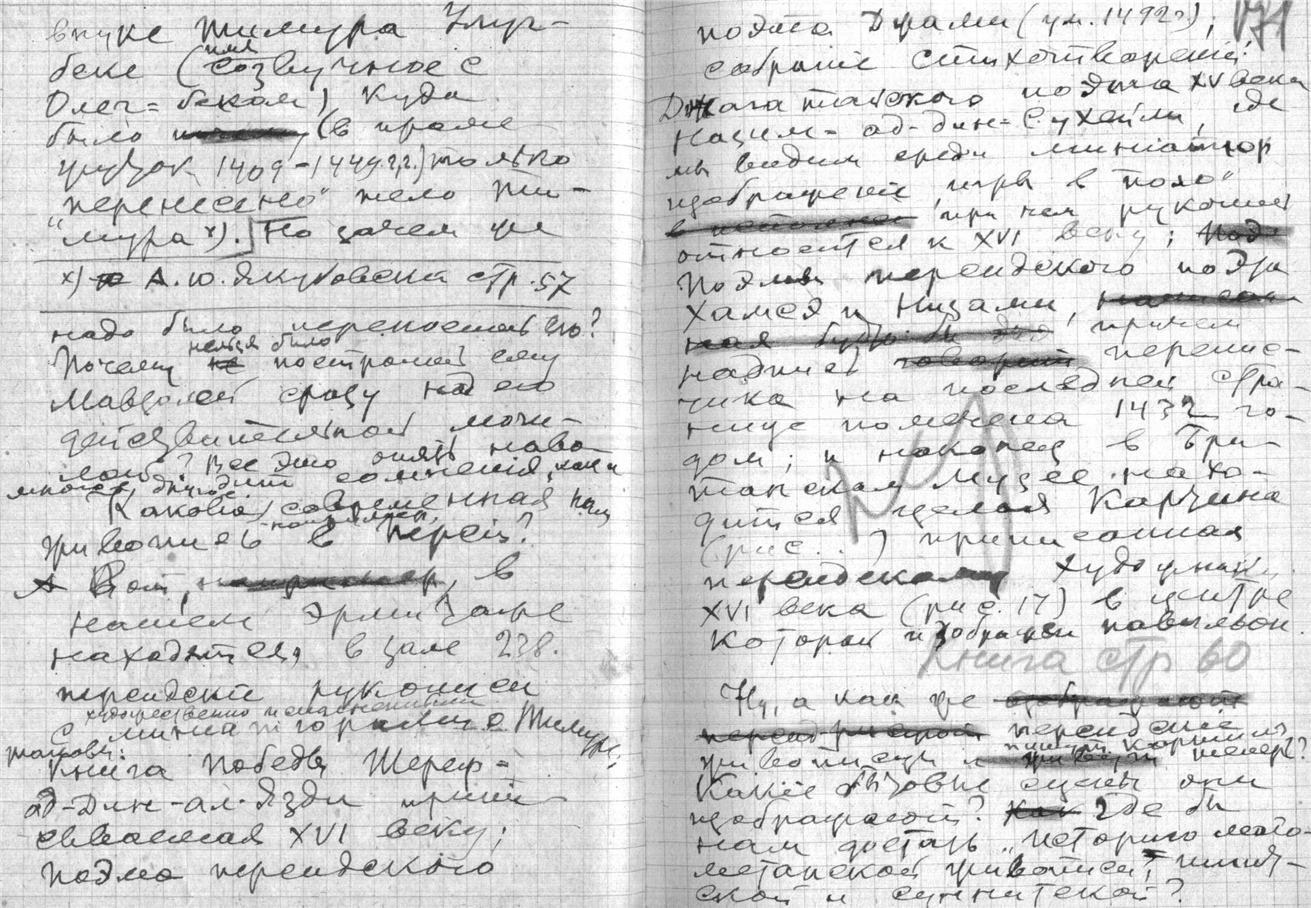 внуке Тимура Улуг-
беке (имя созвучное с
Олег=беком) куда
было (в проме
жуток 1409-1449 гг.) только
"перенесено" тело Ти-
"мура х). Но зачем же
х) А.Ю. Якубовски стр. 57
надо было переносить его?
Почему нельзя было построить ему
Мавзолей сразу над его
действительной моги-
лой? Все это опять наво
дит сомнения, как и
многое другое.
Какова современная нам
живопись, например, в Персии?
А Вот, в
нашем Эрмитаже
находятся, в зале 238.
персидские рукописи
с художественно исполненными
миниатюрами о Тимуре,
таковы:
Книга Победы Шереф-
ад-Дин-ал-Язди припи
сываемая XVI веку;
Поэма персидского
171
поэта Драми (ум. 1492 г);
собрание стихотворений
Джагатайского поэта XV века
Низам-ад-дин-Сухейли, где
мы видим среди миниатюр
изображение "игры в поло"
при чем рукопись
относится к XVI веку;
Поэмы персидского поэта
Хамсэ и Низами,
причем
надпись перепис-
чика на последней стра-
нице помечена 1432 го-
дом; и наконец в Бри-
танском Музее нахо-
дится целая Картина
(рис...) приписанная
персидскому художнику
XVI века (рис. 17) в центре
которой изображен павильон
Книга стр 60
Ну, а как же
персидские
живописцы пишут картины теперь?
Какие бытовые сцены они
изображают? Где бы
нам достать "Историю маго-
метанской живописи", шиит-
ской и суннитской?